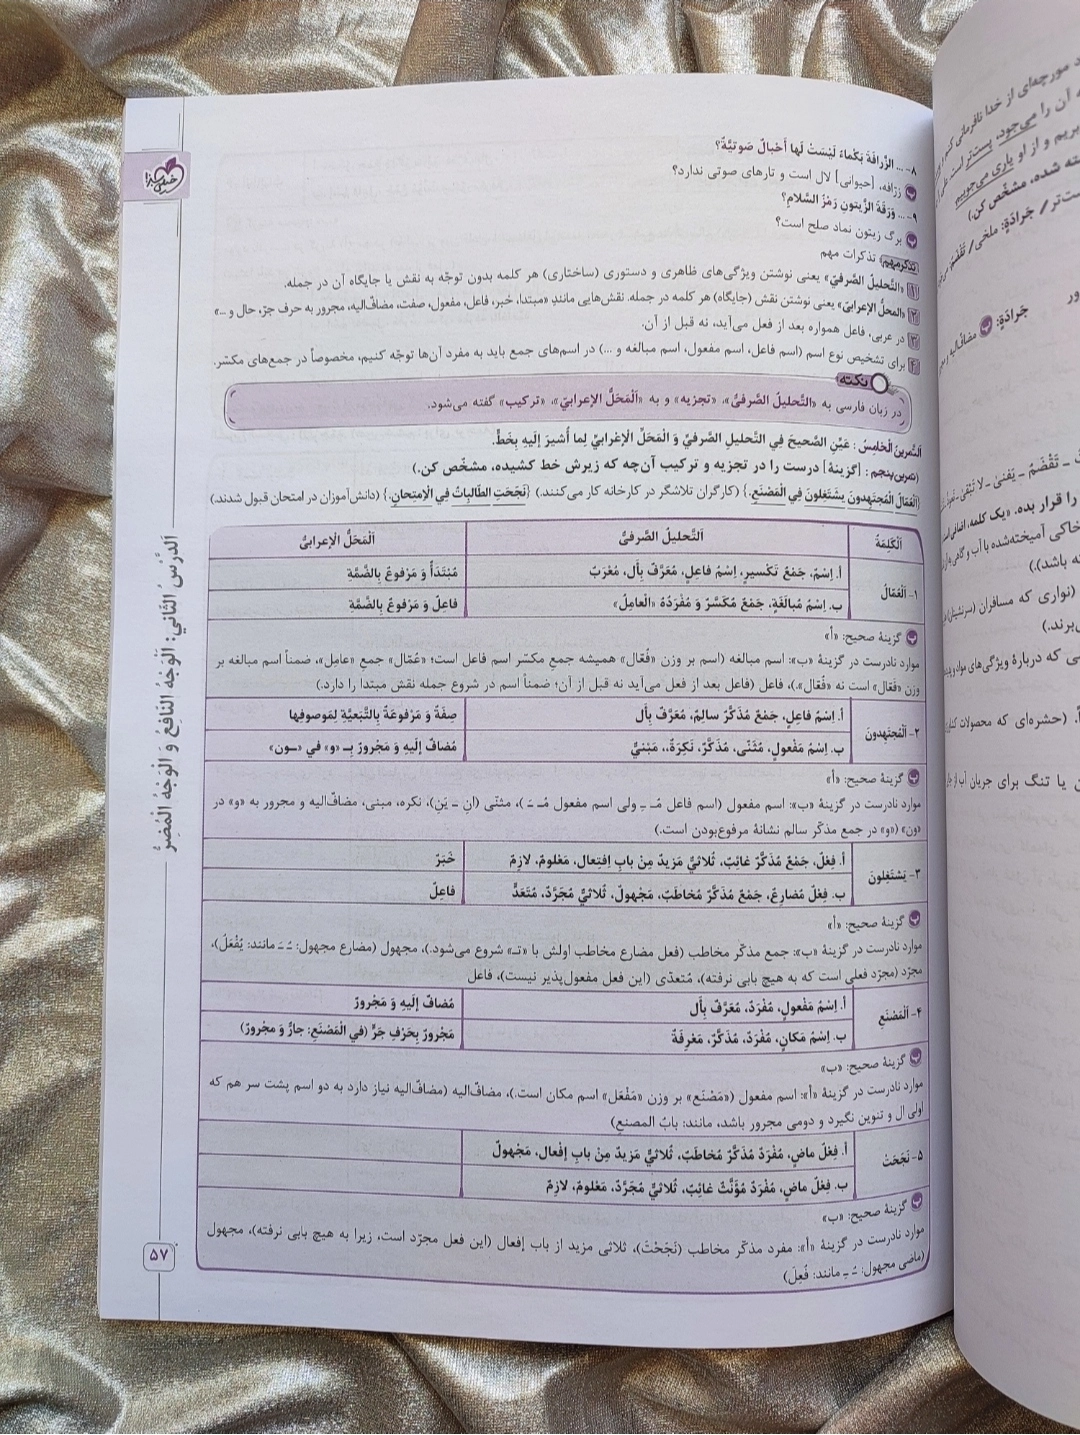 ۸- ... الزَّرافَةُ بَكْماءُ لَيْسَتْ لَها أَحْبالٌ صَوتيَّةٌ؟
زرّافه، [حیوانی] لال است و تارهای صوتی ندارد؟
۹- ... وَرَقَةُ الزَّیتونِ رَمْزُ السَّلامِ؟
برگ زیتون نماد صلح است؟
تذکر مهم تذکرات مهم
۱ «التَّحلیلُ الصَّرفيّ» یعنی نوشتن ویژگی‌های ظاهری و دستوری (ساختاری) هر کلمه بدون توجّه به نقش یا جایگاه آن در جمله.
۲ «المَحلُّ الإعرابيّ» یعنی نوشتن نقش (جایگاه) هر کلمه در جمله. نقش‌هایی مانند «مبتدا، خبر، فاعل، مفعول، صفت، مضافٌ‌الیه، مجرور به حرف جرّ، حال و ...»
۳ در عربی، فاعل همواره بعد از فعل می‌آید، نه قبل از آن.
۴ برای تشخیص نوع اسم (اسم فاعل، اسم مفعول، اسم مبالغه و ...) در اسم‌های جمع باید به مفرد آن‌ها توجّه کنیم، مخصوصاً در جمع‌های مکسّر.
نکته
در زبان فارسی به «التَّحلیلُ الصَّرفيُّ»، «تجزیه» و به «اَلْمَحَلُّ الإعرابيّ»، «ترکیب» گفته می‌شود.
اَلتَّمرینُ الْخامسُ : عَیِّنِ الصَّحیحَ فِي التَّحلیلِ الصَّرفيِّ وَ الْمَحَلِّ الْإعْرابيِّ لِما أُشیرَ إلَیهِ بِخَطٍّ.
(تمرین پنجم : [گزینهٔ] درست را در تجزیه و ترکیب آن‌چه که زیرش خط کشیده، مشخّص کن.)
{اَلْعُمّالُ الْمُجتَهِدونَ یَشتَغِلونَ فِي الْمَصْنَعِ.} (کارگران تلاشگر در کارخانه کار می‌کنند.) {نَجَحَتِ الطّالِباتُ فِي الْاِمتِحانِ.} (دانش‌آموزان در امتحان قبول شدند.)
اَلْکَلِمَةُ اَلتَّحلیلُ الصَّرفيُّ اَلْمَحَلُّ الْإعرابيُّ
۱- اَلْعُمّالُ
أ. اِسْمٌ، جَمْعُ تَکْسیرٍ، اِسْمُ فاعِلٍ، مُعَرَّفٌ بِأَل، مُعْرَبٌ مُبْتَدَأٌ وَ مَرْفوعٌ بِالضَّمَّةِ
ب. اِسْمُ مُبالَغَةٍ، جَمْعٌ مُکَسَّرٌ وَ مُفْرَدُهُ «الْعامِلُ» فاعِلٌ وَ مَرْفوعٌ بِالضَّمَّةِ
گزینهٔ صحیح: «أ»
موارد نادرست در گزینهٔ «ب»: اسم مبالغه (اسم بر وزن «فُعّال» همیشه جمع مکسّر اسم فاعل است؛ «عُمّال» جمع «عامِل»، ضمناً اسم مبالغه بر
وزن «فَعّال» است نه «فُعّال».)، فاعل (فاعل بعد از فعل می‌آید نه قبل از آن؛ ضمناً اسم در شروع جمله نقش مبتدا را دارد.)
۲- اَلْمُجتَهِدونَ
أ. اِسْمُ فاعِلٍ، جَمْعُ مُذَکَّرٍ سالِمٌ، مُعَرَّفٌ بِأَل صِفَةٌ وَ مَرْفوعَةٌ بِالتَّبَعیَّةِ لِمَوصوفِها
ب. اِسْمُ مَفْعولٍ، مُثَنّی، مُذَکَّرٌ، نَکِرَةٌ،، مَبْنيٌّ مُضافٌ إلَیْهِ وَ مَجْرورٌ بِـ «و» في «ـون»
گزینهٔ صحیح: «أ»
موارد نادرست در گزینهٔ «ب»: اسم مفعول (اسم فاعل مُـ ـِ ولی اسم مفعول مُـ ـَ)، مثنّی (انِ ـ یْنِ)، نکره، مبنی، مضافٌ‌الیه و مجرور به «و» در
«ون» («و» در جمع مذکّر سالم نشانهٔ مرفوع‌بودن است.)
۳- یَشتَغِلونَ
أ. فِعْلٌ، جَمْعٌ مُذَکَّرٌ غائِبٌ، ثُلاثيٌّ مَزیدٌ مِنْ بابِ اِفتِعال، مَعْلومٌ، لازِمٌ خَبَرٌ
ب. فِعْلٌ مُضارِعٌ، جَمْعٌ مُذَکَّرٌ مُخاطَبٌ، مَجْهولٌ، ثُلاثيٌّ مُجَرَّدٌ، مُتَعَدٍّ فاعِلٌ
گزینهٔ صحیح: «أ»
موارد نادرست در گزینهٔ «ب»: جمع مذکّر مخاطب (فعل مضارع مخاطب اولش با «تـ» شروع می‌شود.)، مجهول (مضارع مجهول: ـُ ـَ مانند: یُفْعَلُ)،
مجرّد (مجرّد فعلی است که به هیچ بابی نرفته)، مُتعدّی (این فعل مفعول‌پذیر نیست)، فاعل
۴- اَلْمَصْنَعِ
أ. اِسْمُ مَفْعولٍ، مُفْرَدٌ، مُعَرَّفٌ بِأَل مُضافٌ إلَیهِ وَ مَجْرورٌ
ب. اِسْمُ مَکانٍ، مُفْرَدٌ، مُذَکَّرٌ، مَعْرِفَةٌ مَجْرورٌ بِحَرْفِ جَرٍّ (فِي الْمَصْنَعِ: جارٌّ وَ مَجْرورٌ)
گزینهٔ صحیح: «ب»
موارد نادرست در گزینهٔ «أ»: اسم مفعول («مَصْنَع» بر وزن «مَفْعَل» اسم مکان است.)، مضافٌ‌الیه (مضافٌ‌الیه نیاز دارد به دو اسم پشت سر هم که
اولی ال و تنوین نگیرد و دومی مجرور باشد، مانند: بابُ المصنعِ)
۵- نَجَحَتْ
أ. فِعْلٌ ماضٍ، مُفْرَدٌ مُذَکَّرٌ مُخاطَبٌ، ثُلاثيٌّ مَزیدٌ مِنْ بابِ إفْعال، مَجْهولٌ
ب. فِعْلٌ ماضٍ، مُفْرَدٌ مُؤَنَّثٌ غائِبٌ، ثُلاثيٌّ مُجَرَّدٌ، مَعْلومٌ، لازِمٌ
گزینهٔ صحیح: «ب»
موارد نادرست در گزینهٔ «أ»: مفرد مذکّر مخاطب (نَجَحْتَ)، ثلاثی مزید از باب إفعال (این فعل مجرّد است، زیرا به هیچ بابی نرفته)، مجهول
(ماضی مجهول: ـُ ـِ مانند: فُعِلَ)
اَلدَّرْسُ الثّاني: اَلْوَجْهُ النّافِعُ وَ الْوَجْهُ الْمُضِرُّ
۵۷